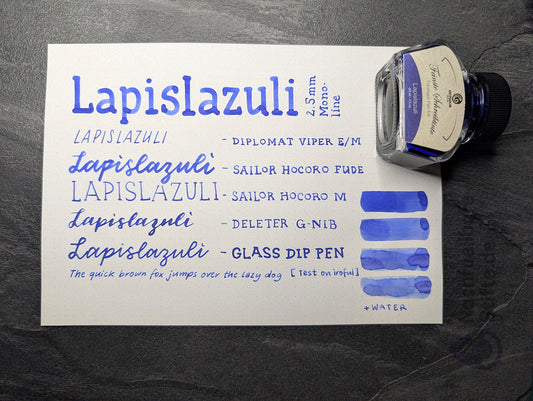 Lapislazuli
2.5mm
Mono-
line
LAPISLAZULI - DIPLOMAT VIPER E/M
Lapislazuli - SAILOR HOCORO FUDE
LAPISLAZULI - SAILOR HOCORO M
Lapislazuli - DELETER G-NIB
Lapislazuli - GLASS DIP PEN
The quick brown fox jumps over the lazy dog [Test on iroful]
+WATER
Lapislazuli